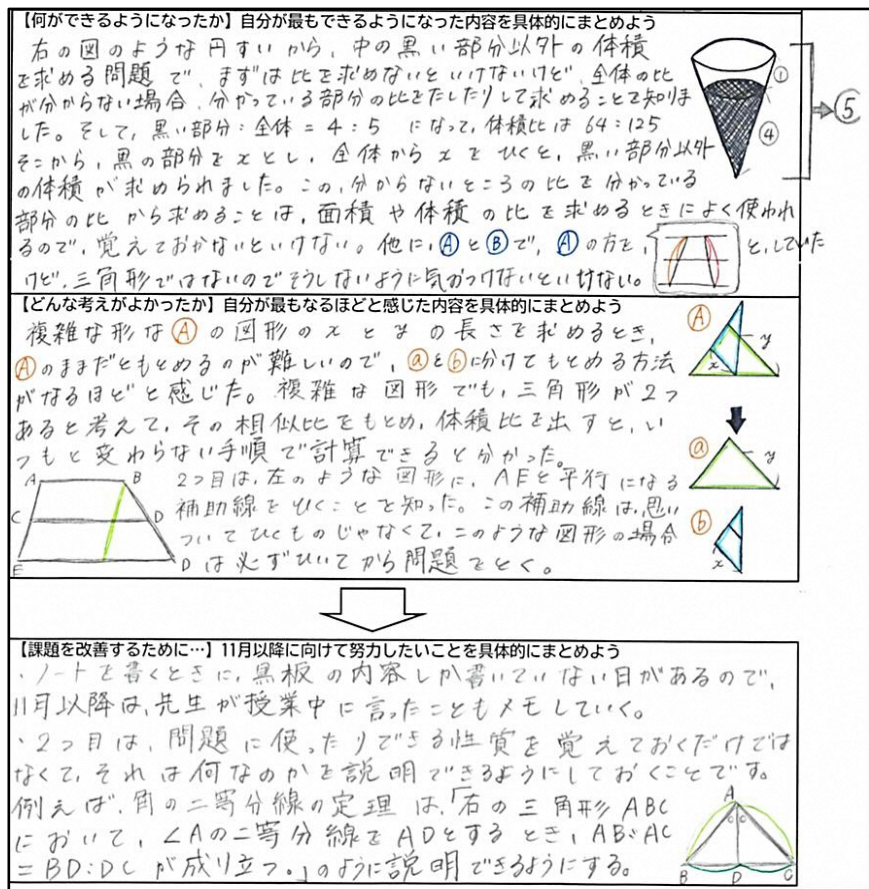 【何ができるようになったか】自分が最もできるようになった内容を具体的にまとめよう
右の図のような円すいから、中の黒い部分以外の体積
を求める問題で、まずは比を求めないといけないけど、全体の比
が分からない場合、分かっている部分の比をたしたりして求めることを知りま
した。そして、黒い部分:全体=4:5 になって、体積比は 64:125
そこから、黒の部分をxとし、全体からxをひくと、黒い部分以外
の体積が求められました。この、分からないところの比を分かっている
部分の比から求めることは、面積や体積の比を求めるときによく使われ
るので、覚えておかないといけない。他に、ⒶとⒷで、Ⓐの方を、と、していた
けど、三角形ではないのでそうしないように気をつけないといけない。
①
④
⑤
【どんな考えがよかったか】自分が最もなるほどと感じた内容を具体的にまとめよう
複雑な形なⒶの図形のxとyの長さを求めるとき、
Ⓐのままだともとめるのが難しいので、ⓐとⓑに分けてもとめる方法
がなるほどと感じた。複雑な図形でも、三角形が2つ
あると考えて、その相似比をもとめ、体積比を出すと、い
つもと変わらない手順で計算できると分かった。
2つ目は、左のような図形に、AEと平行になる
補助線をひくことを知った。この補助線は、思い
ついてひくものじゃなくて、このような図形の場合
は必ずひいてから問題をとく。
A B
C D
E D
Ⓐ
y
x
ⓐ
y
ⓑ
x
【課題を改善するために…】11月以降に向けて努力したいことを具体的にまとめよう
・ノートを書くときに、黒板の内容しか書いていない日があるので、
11月以降は、先生が授業中に言ったこともメモしていく。
・2つ目は、問題に使ったりできる性質を覚えておくだけでは
なくて、それは何なのかを説明できるようにしておくことです。
例えば、角の二等分線の定理は、「右の三角形ABC
において、∠Aの二等分線をADとするとき、AB:AC
=BD:DCが成り立つ。」のように説明できるようにする。
A
B D C